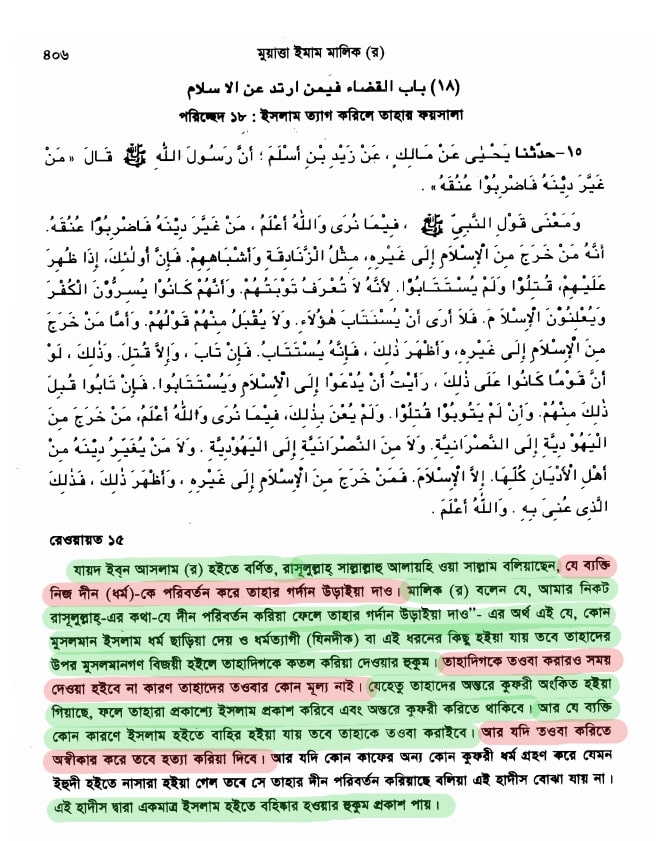 ৪০৬ মুয়াত্তা ইমাম মালিক (র)
(১৮) باب القضاء فيمن ارتد عن الاسلام
পরিচ্ছেদ ১৮ : ইসলাম ত্যাগ করিলে তাহার ফয়সালা
১৫-حدّثنا يَحْيٰى عَنْ مَالِكٍ ، عَنْ زَيْدِ بْنِ أَسْلَمَ ؛ أَنَّ رَسُولَ اللّٰهِ ﷺ قَالَ « مَنْ
غَيَّرَ دِيْنَهُ فَاضْرِبُوْا عُنُقَهُ » .
وَمَعْنَى قَوْلِ النَّبِيِّ ﷺ ، فِيْمَا نُرَى وَاللّٰهُ أَعْلَمُ ، مَنْ غَيَّرَ دِيْنَهُ فَاضْرِبُوْا عُنُقَهُ.
أَنَّهُ مَنْ خَرَجَ مِنَ الْإِسْلَامِ إِلَى غَيْرِهِ، مِثْلُ الزَّنَادِقَةِ وَأَشْبَاهِهِمْ. فَإِنَّ أُولٰئِكَ، إِذَا ظُهِرَ
عَلَيْهِمْ، قُتِلُوْا وَلَمْ يُسْتَتَابُوْا. لأَنَّهُ لَا تُعْرَفُ تَوْبَتُهُمْ. وَأَنَّهُمْ كَانُوْا يُسِرُّوْنَ الْكُفْرَ
وَيُعْلِنُوْنَ الْإِسْلَا مَ. فَلَا أَرَى أَنْ يُسْتَتَابَ هٰؤُلَاءِ. وَلَا يُقْبَلُ مِنْهُمْ قَوْلُهُمْ. وَأَمَّا مَنْ خَرَجَ
مِنَ الْإِسْلَامِ إِلَى غَيْرِهِ، وَأَظْهَرَ ذٰلِكَ ، فَإِنَّهُ يُسْتَتَابُ. فَإِنْ تَابَ ، وَإِلَّا قُتِلَ. وَذٰلِكَ ، لَوْ
أَنَّ قَوْمًا كَانُوْا عَلَى ذٰلِكَ ، رَأَيْتُ أَنْ يُدْعَوْا إِلَى الْإِسْلَامِ وَيُسْتَتَابُوْا. فَإِنْ تَابُوْا قُبِلَ
ذٰلِكَ مِنْهُمْ. وَإِنْ لَمْ يَتُوبُوْا قُتِلُوْا. وَلَمْ يَعْنِ بِذٰلِكَ، فِيْمَا نُرَى وَاللّٰهُ أَعْلَمُ، مَنْ خَرَجَ مِنَ
الْيَهُوْ دِيَّةِ إِلَى النَّصْرَانِيَّةِ. وَلَا مِنَ النَّصْرَانِيَّةِ إِلَى الْيَهُوْدِيَّةِ . وَلَا مَنْ يُغَيِّرُ دِيْنَهُ مِنْ
أَهْلِ الْأَدْيَانِ كُلِّهَا. إِلَّا الْإِسْلَامَ. فَمَنْ خَرَجَ مِنَ الْإِسْلَامِ إِلَى غَيْرِهِ ، وَأَظْهَرَ ذٰلِكَ ، فَذٰلِكَ
الَّذِى عُنِىَ بِهِ . وَاللّٰهُ أَعْلَمُ .
রেওয়ায়ত ১৫
যায়দ ইব্‌ন আসলাম (র) হইতে বর্ণিত, রাসূলুল্লাহ্ সাল্লাল্লাহু আলায়হি ওয়া সাল্লাম বলিয়াছেন, যে ব্যক্তি
নিজ দীন (ধর্ম)-কে পরিবর্তন করে তাহার গর্দান উড়াইয়া দাও। মালিক (র) বলেন যে, আমার নিকট
রাসূলুল্লাহ্-এর কথা-যে দীন পরিবর্তন করিয়া ফেলে তাহার গর্দান উড়াইয়া দাও”- এর অর্থ এই যে, কোন
মুসলমান ইসলাম ধর্ম ছাড়িয়া দেয় ও ধর্মত্যাগী (যিনদীক) বা এই ধরনের কিছু হইয়া যায় তবে তাহাদের
উপর মুসলমানগণ বিজয়ী হইলে তাহাদিগকে কতল করিয়া দেওয়ার হুকুম। তাহাদিগকে তওবা করারও সময়
দেওয়া হইবে না কারণ তাহাদের তওবার কোন মূল্য নাই। যেহেতু তাহাদের অন্তরে কুফরী অংকিত হইয়া
গিয়াছে, ফলে তাহারা প্রকাশ্যে ইসলাম প্রকাশ করিবে এবং অন্তরে কুফরী করিতে থাকিবে। আর যে ব্যক্তি
কোন কারণে ইসলাম হইতে বাহির হইয়া যায় তবে তাহাকে তওবা করাইবে। আর যদি তওবা করিতে
অস্বীকার করে তবে হত্যা করিয়া দিবে। আর যদি কোন কাফের অন্য কোন কুফরী ধর্ম গ্রহণ করে যেমন
ইহুদী হইতে নাসারা হইয়া গেল তবে সে তাহার দীন পরিবর্তন করিয়াছে বলিয়া এই হাদীস বোঝা যায় না।
এই হাদীস দ্বারা একমাত্র ইসলাম হইতে বহিষ্কার হওয়ার হুকুম প্রকাশ পায়।